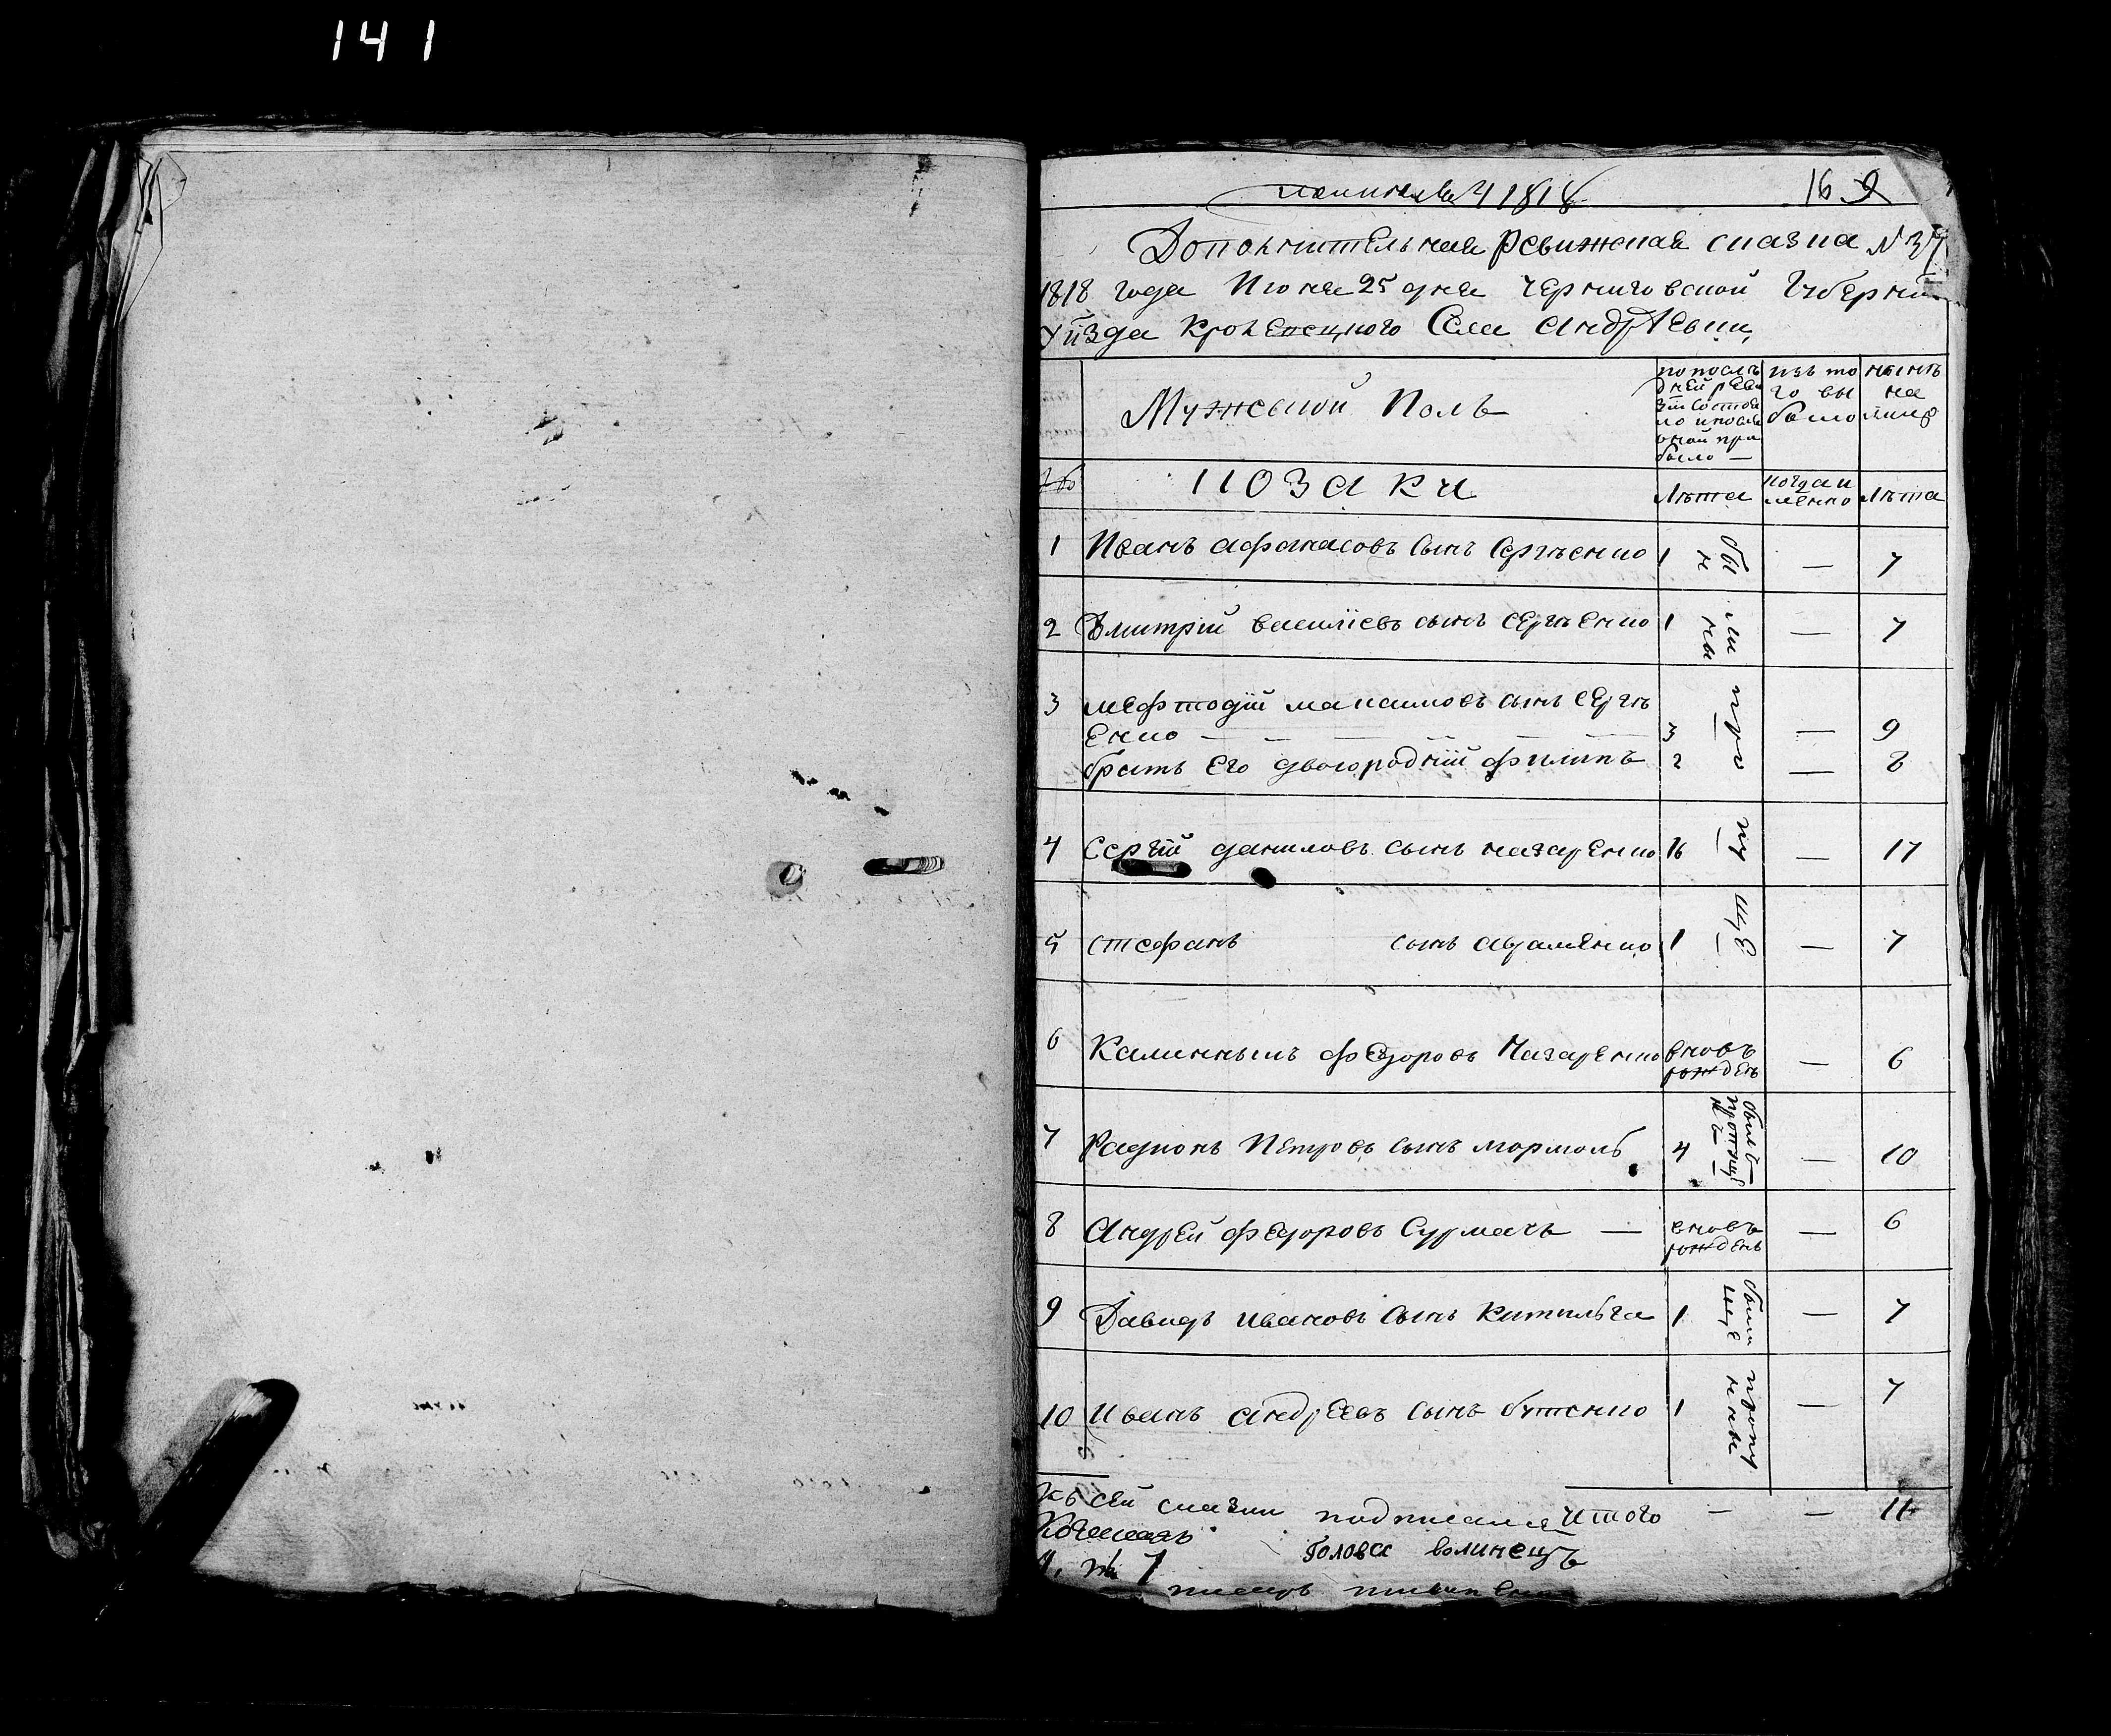 141
1818
16
Дополнительная Ревижская сказка N 37
1818 года Июня 25 дня Черниговской Губернии
уѣзда Кролевецкого Села Андрѣевки,
Мужской Полъ
по послѣ
дней реви
зіи состоя
ло и после
оной при
было —
изъ то
го вы
было
нынѣ
на
лицо
козаки
Лѣта
когда и
менно
Лѣта
1 Иванъ Афанасовъ сынъ Сергѣенко 1 — 7
2 Дмитрій василіевъ сынъ сергѣенко 1 — 7
3 мефтодій максимовъ сынъ сергѣ
енко — — — — — 3 — 9
братъ его двоюродній филипъ 2 — 8
4 Сергій даниловъ сынъ назаренко 16 — 17
5 стефанъ сынъ авраменко 1 — 7
6 Калинныкъ федоровъ Назаренко вновь рожденъ — 6
7 Радионъ Петровъ сынъ мормоль 4 — 10
8 Андрей федоровъ Сурмачъ — вновь рожденъ — 6
9 Давидъ ивановъ сынъ 1 — 7
10 иванъ андреевъ сынъ бутенко 1 — 7
были
пропу
щe
ны
Итого — — 11
Къ сей сказки подписался
Голова волинецъ
писарь